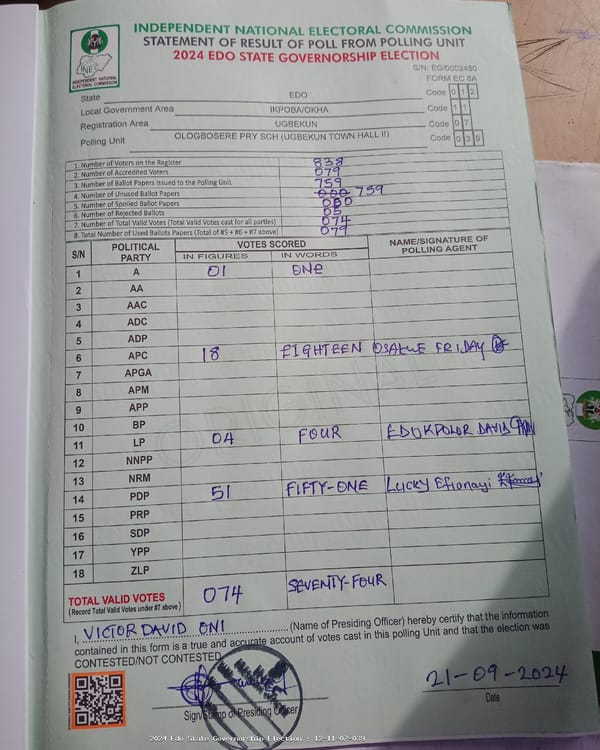 INDEPENDENT NATIONAL ELECTORAL COMMISSION
STATEMENT OF RESULT OF POLL FROM POLLING UNIT
2024 EDO STATE GOVERNORSHIP ELECTION
INEC
INDEPENDENT NATIONAL ELECTORAL COMMISSION
S/N: EG/0002460
FORM EC 8A
State EDO Code 0 1 2
Local Government Area IKPOBA/OKHA Code 1 1
Registration Area UGBEKUN Code 0 7
Polling Unit OLOGBOSERE PRY SCH (UGBEKUN TOWN HALL II) Code 0 3 9
1. Number of Voters on the Register 838
2. Number of Accredited Voters 079
3. Number of Ballot Papers Issued to the Polling Unit 759
4. Number of Unused Ballot Papers 759
5. Number of Spoiled Ballot Papers 000
6. Number of Rejected Ballots 05
7. Number of Total Valid Votes (Total Valid Votes cast for all parties) 074
8. Total Number of Used Ballots Papers (Total of #5 + #6 + #7 above) 079
S/N POLITICAL PARTY VOTES SCORED NAME/SIGNATURE OF POLLING AGENT
IN FIGURES IN WORDS
1 A 01 ONE
2 AA
3 AAC
4 ADC
5 ADP
6 APC 18 EIGHTEEN OSAKUE FRIDAY
7 APGA
8 APM
9 APP
10 BP
11 LP 04 FOUR EDUKPOLOR DAVID
12 NNPP
13 NRM
14 PDP 51 FIFTY-ONE Lucky Efionayi
15 PRP
16 SDP
17 YPP
18 ZLP
TOTAL VALID VOTES 074 SEVENTY-FOUR
(Record Total Valid Votes under #7 above)
I, VICTOR DAVID ONI (Name of Presiding Officer) hereby certify that the information
contained in this form is a true and accurate account of votes cast in this polling Unit and that the election was
CONTESTED/NOT CONTESTED
21-09-2024
Sign/Stamp of Presiding Officer
Date
2024 Edo State Governorship Election : 12-11-07-039